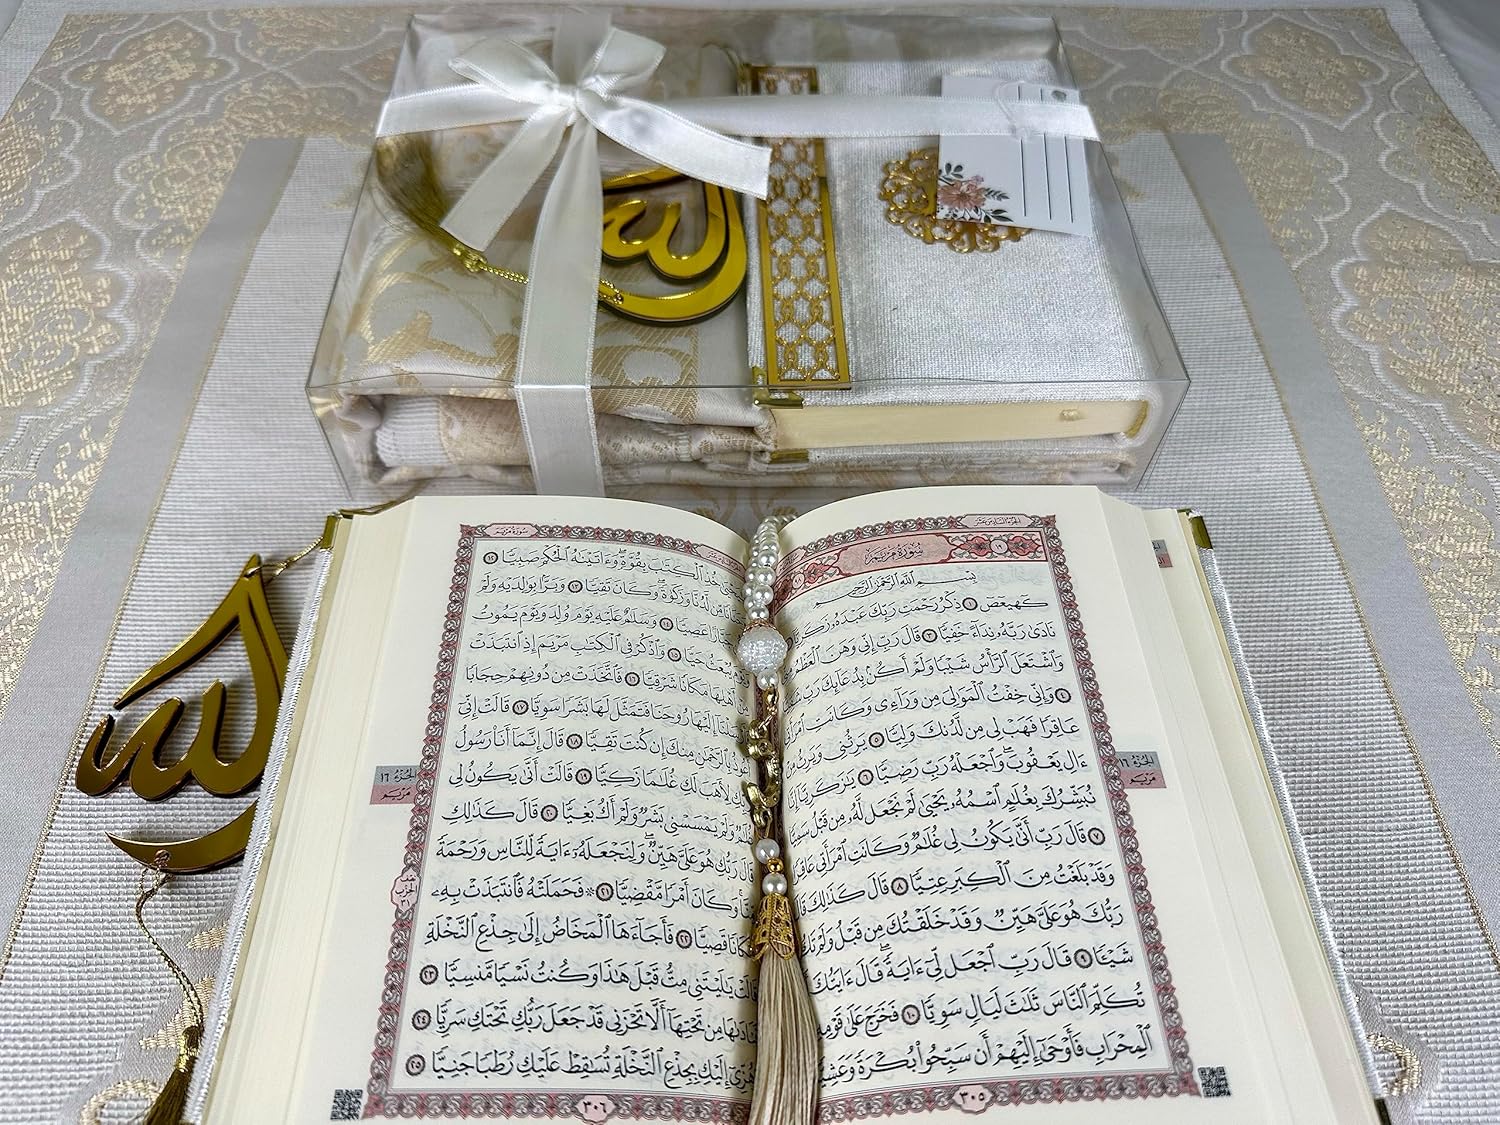 الجزء السادس عشر
سُورَةُ مَرْيَمَ
بِسْمِ ٱللَّهِ ٱلرَّحْمَٰنِ ٱلرَّحِيمِ
كٓهيعٓصٓ ١ ذِكْرُ رَحْمَتِ رَبِّكَ عَبْدَهُۥ زَكَرِيَّآ
نَادَىٰ رَبَّهُۥ نِدَآءً خَفِيًّا ٣ قَالَ رَبِّ إِنِّي وَهَنَ ٱلْعَظْمُ
وَٱشْتَعَلَ ٱلرَّأْسُ شَيْبًا وَلَمْ أَكُنۢ بِدُعَآئِكَ رَبِّ
٤ وَإِنِّي خِفْتُ ٱلْمَوَٰلِيَ مِن وَرَآءِي وَكَانَتِ ٱمْرَأَتِي
عَاقِرًا فَهَبْ لِي مِن لَّدُنكَ وَلِيًّا ٥ يَرِثُنِي وَيَرِثُ مِنْ
ءَالِ يَعْقُوبَ وَٱجْعَلْهُ رَبِّ رَضِيًّا ٦ يَٰزَكَرِيَّآ إِنَّا
نُبَشِّرُكَ بِغُلَٰمٍ ٱسْمُهُۥ يَحْيَىٰ لَمْ نَجْعَل لَّهُۥ مِن قَبْلُ سَمِيًّا
٧ قَالَ رَبِّ أَنَّىٰ يَكُونُ لِي غُلَٰمٌ وَكَانَتِ ٱمْرَأَتِي عَاقِرًا
وَقَدْ بَلَغْتُ مِنَ ٱلْكِبَرِ عِتِيًّا ٨ قَالَ كَذَٰلِكَ قَالَ
رَبُّكَ هُوَ عَلَيَّ هَيِّنٌ وَقَدْ خَلَقْتُكَ مِن قَبْلُ وَلَمْ تَكُ
شَيْـًٔا ٩ قَالَ رَبِّ ٱجْعَل لِّيٓ ءَايَةً قَالَ ءَايَتُكَ
تُكَلِّمَ ٱلنَّاسَ ثَلَٰثَ لَيَالٍ سَوِيًّا ١٠ فَخَرَجَ عَلَىٰ قَوْمِهِۦ
ٱلْمِحْرَابِ فَأَوْحَىٰٓ إِلَيْهِمْ أَن سَبِّحُوا۟ بُكْرَةً وَعَشِيًّا
٣٠٥
الجزء ١٦
مريم
سورة مريم
خُذِ ٱلْكِتَٰبَ بِقُوَّةٍ وَءَاتَيْنَٰهُ ٱلْحُكْمَ صَبِيًّا ١٢
مِّن لَّدُنَّا وَزَكَوٰةً وَكَانَ تَقِيًّا ١٣ وَبَرًّۢا بِوَٰلِدَيْهِ وَلَمْ
جَبَّارًا عَصِيًّا ١٤ وَسَلَٰمٌ عَلَيْهِ يَوْمَ وُلِدَ وَيَوْمَ يَمُوتُ
وَيَوْمَ يُبْعَثُ حَيًّا ١٥ وَٱذْكُرْ فِي ٱلْكِتَٰبِ مَرْيَمَ إِذِ ٱنتَبَذَتْ
مِنْ أَهْلِهَا مَكَانًا شَرْقِيًّا ١٦ فَٱتَّخَذَتْ مِن دُونِهِمْ حِجَابًا
إِلَيْهَا رُوحَنَا فَتَمَثَّلَ لَهَا بَشَرًا سَوِيًّا ١٧ قَالَتْ إِنِّيٓ
أَعُوذُ بِٱلرَّحْمَٰنِ مِنكَ إِن كُنتَ تَقِيًّا ١٨ قَالَ إِنَّمَآ أَنَا۠ رَسُولُ
رَبِّكِ لِأَهَبَ لَكِ غُلَٰمًا زَكِيًّا ١٩ قَالَتْ أَنَّىٰ يَكُونُ لِي
غُلَٰمٌ وَلَمْ يَمْسَسْنِي بَشَرٌ وَلَمْ أَكُ بَغِيًّا ٢٠ قَالَ كَذَٰلِكِ
قَالَ رَبُّكِ هُوَ عَلَيَّ هَيِّنٌ وَلِنَجْعَلَهُۥٓ ءَايَةً لِّلنَّاسِ وَرَحْمَةً
مِّنَّا وَكَانَ أَمْرًا مَّقْضِيًّا ٢١ ۞ فَحَمَلَتْهُ فَٱنتَبَذَتْ بِهِۦ
مَكَانًا قَصِيًّا ٢٢ فَأَجَآءَهَا ٱلْمَخَاضُ إِلَىٰ جِذْعِ ٱلنَّخْلَةِ
قَالَتْ يَٰلَيْتَنِي مِتُّ قَبْلَ هَٰذَا وَكُنتُ نَسْيًا مَّنسِيًّا ٢٣
فَنَادَىٰهَا مِن تَحْتِهَآ أَلَّا تَحْزَنِي قَدْ جَعَلَ رَبُّكِ تَحْتَكِ سَرِيًّا ٢٤
وَهُزِّيٓ إِلَيْكِ بِجِذْعِ ٱلنَّخْلَةِ تُسَٰقِطْ عَلَيْكِ رُطَبًا جَنِيًّا ٢٥
٣٠٦
الجزء ١٦
مريم
الحزب
٣١
الله
الله